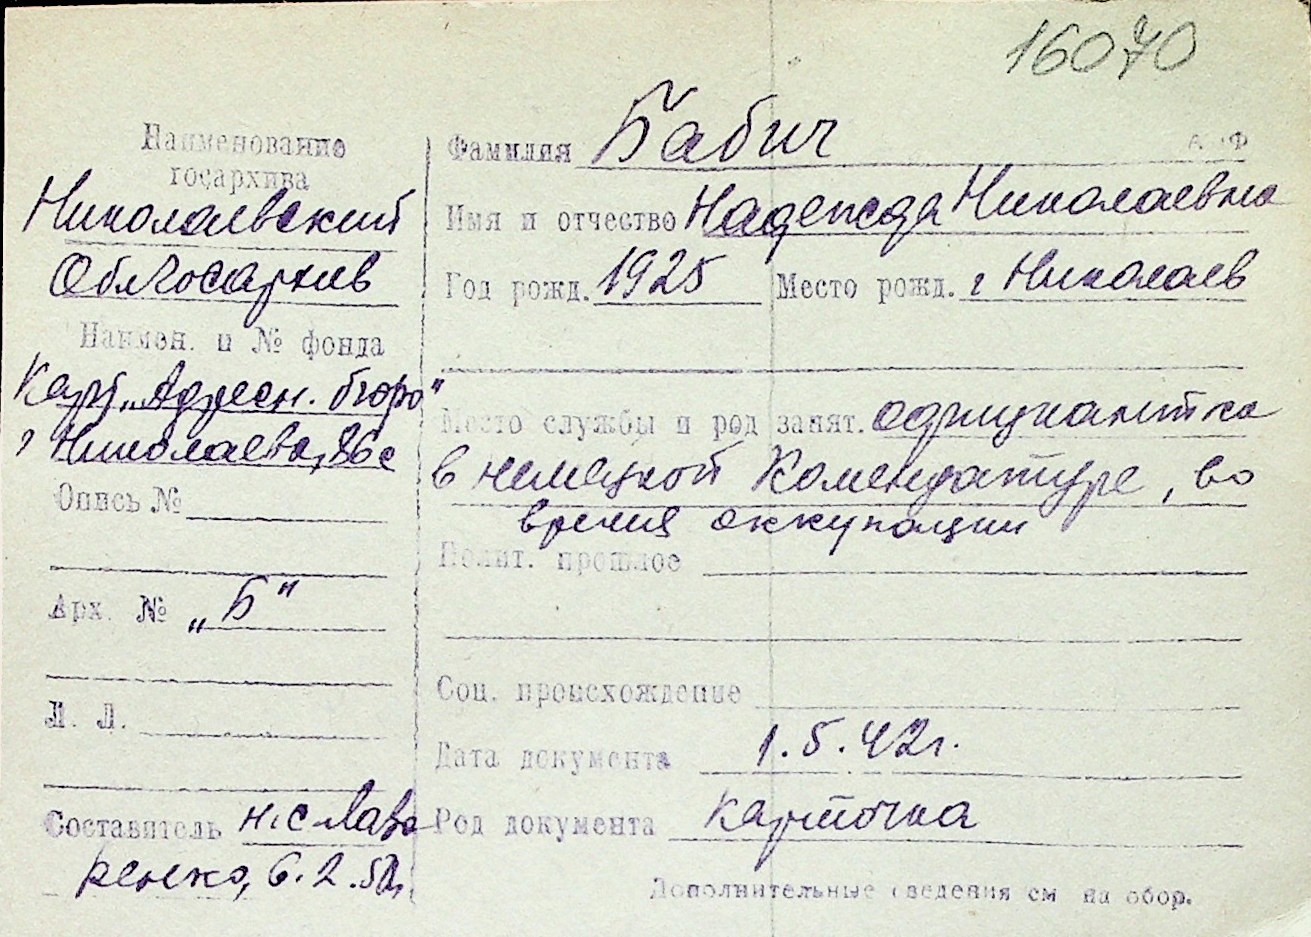 16070
Наименование
госархива
Николаевский
Облгосархив
Наимен. и № фонда
Карт. „Адресн. бюро"
г Николаева,
Опись №
Арх. № „Б"
Л. Л.
Составитель н.с Лавр
ренко, 6.2.52г.
Фамилия Бабич
Имя и отчество Надежда Николаевна
Год рожд. 1925 Место рожд. г Николаев
Место службы и род занят. официантка
в немецкой Комендатуре, во
время оккупации
Полит. прошлое
Соц. происхождение
Дата документа 1.5.42г.
Род документа карточка
Дополнительные сведения см на обор.